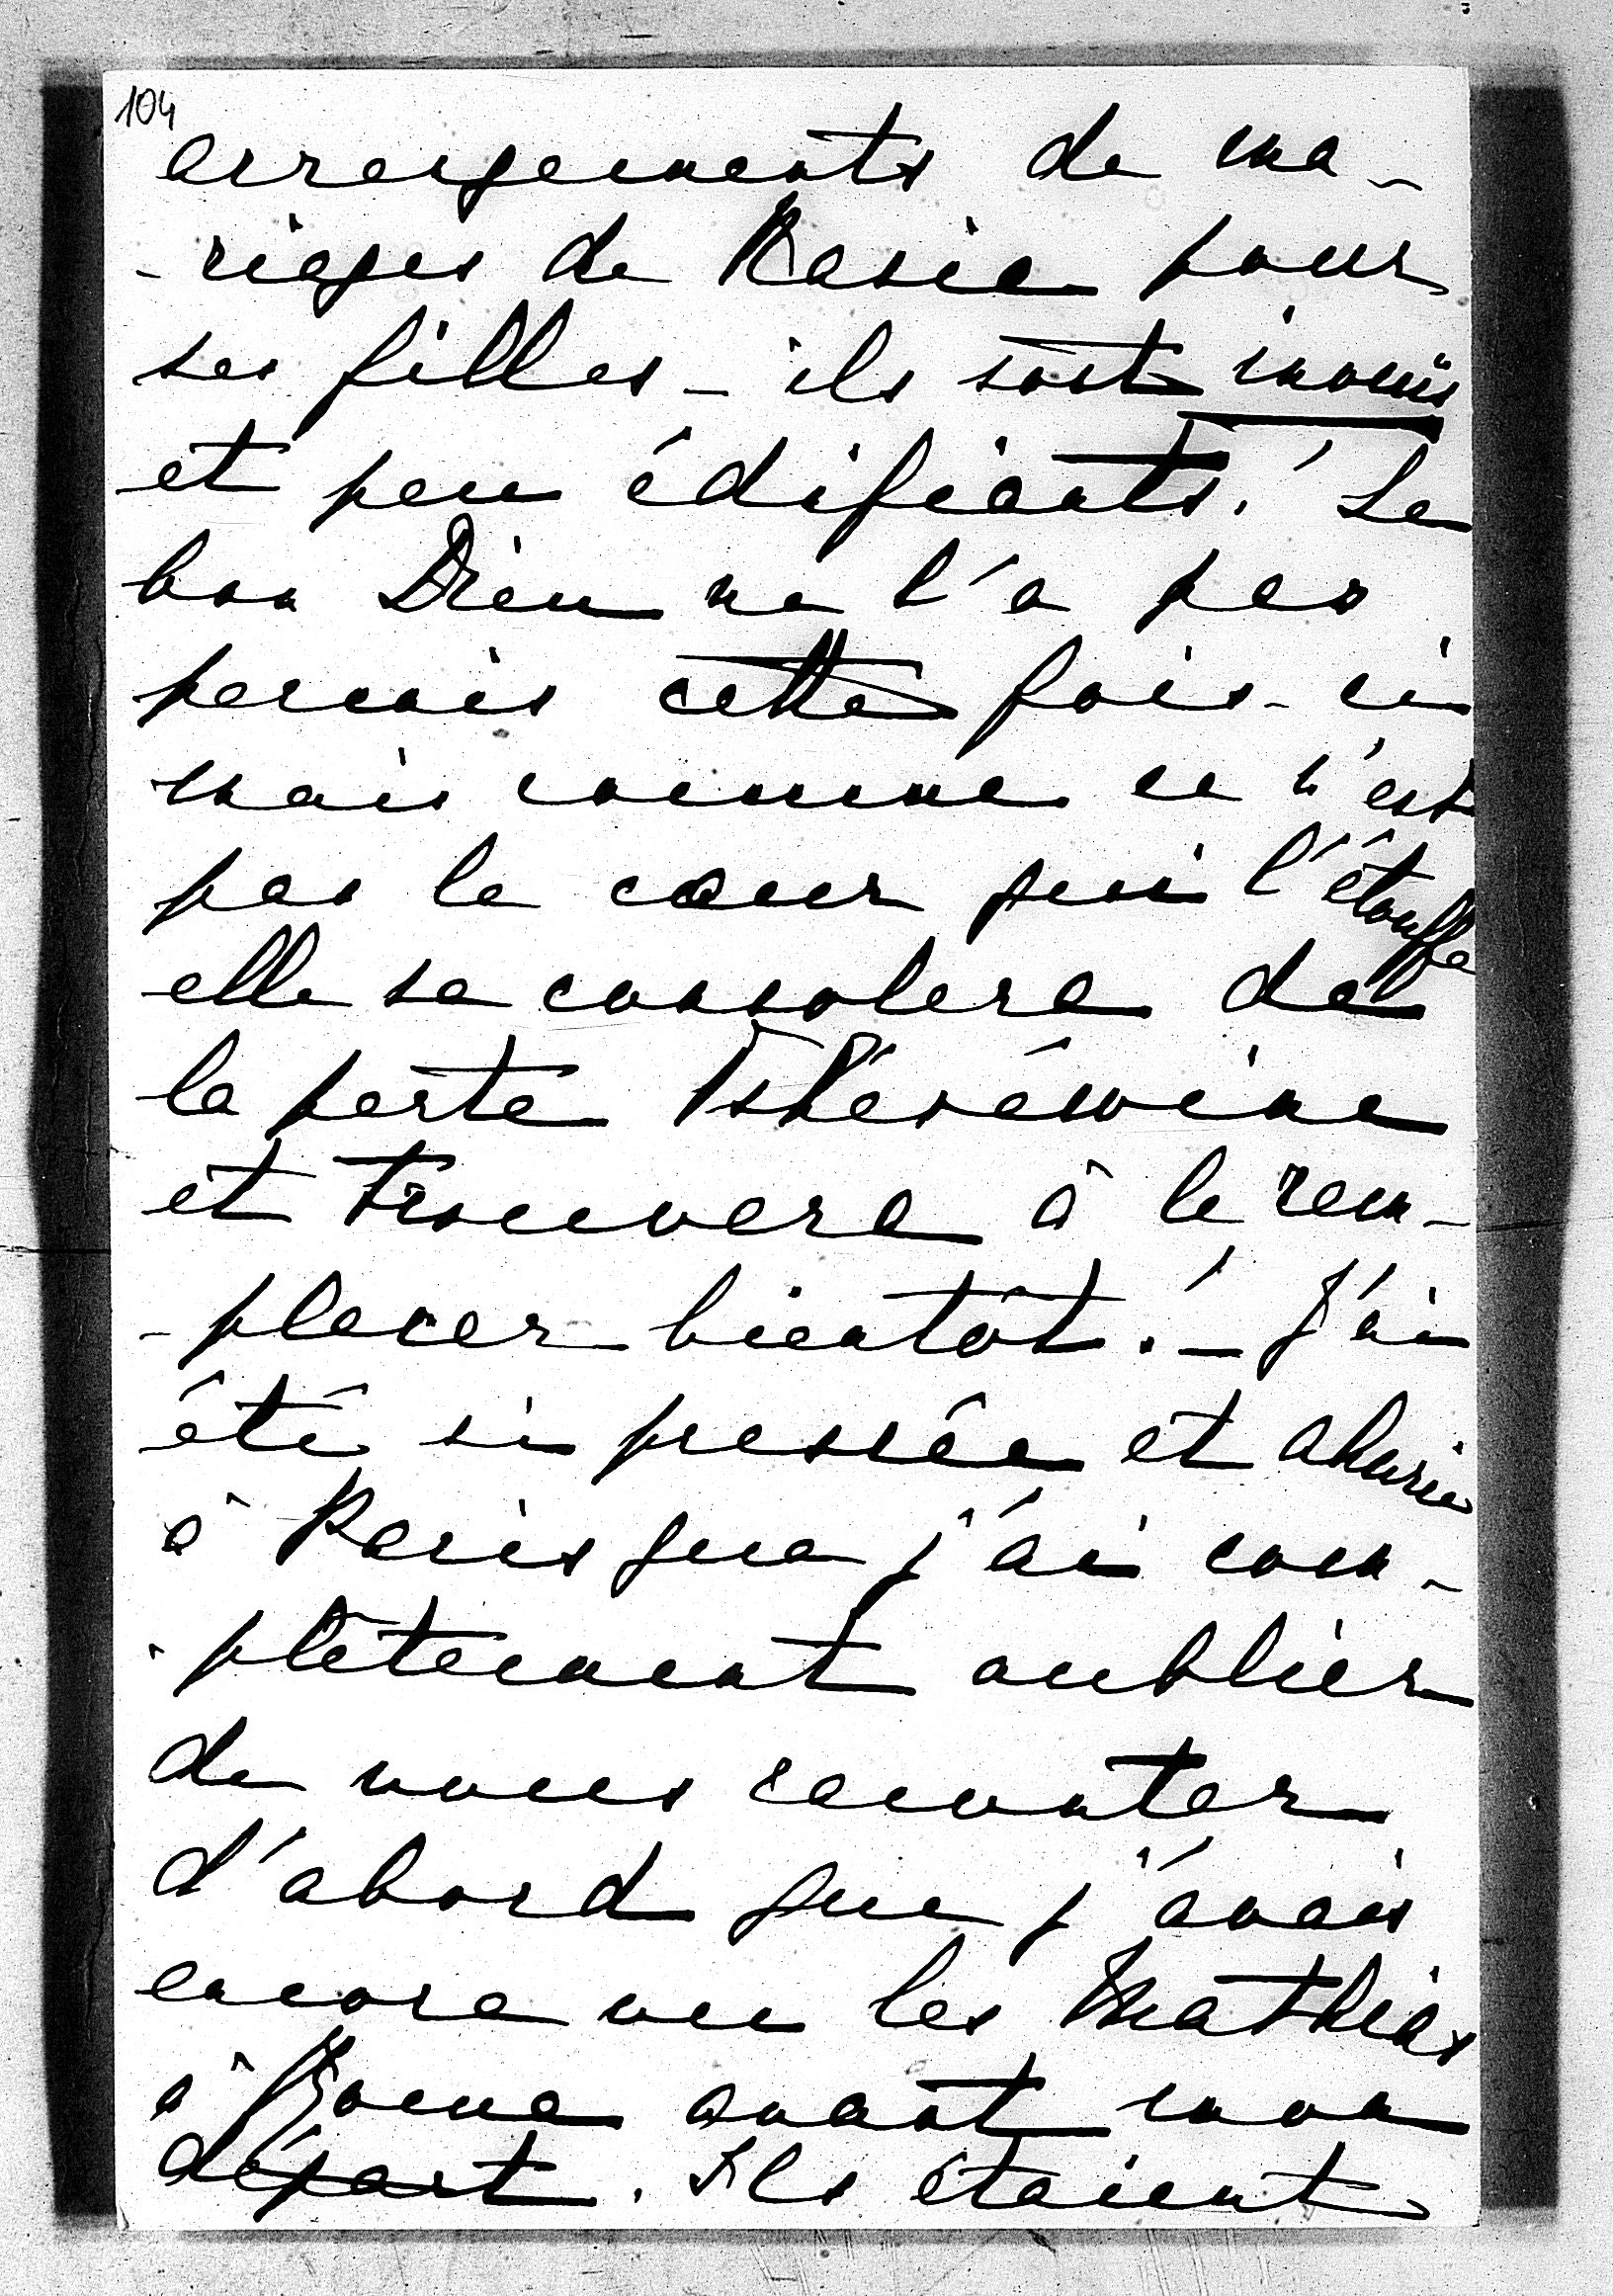 104
arrangements de ma-
-riages de Rosie pour
ses filles - ils sont inouïs
et peu édifiants! Le
bon Dieu ne l'a pas
permis cette fois-ci
mais comme ce n'est
pas le cœur qui l'étouffe
elle se consolera de
la perte
et trouvera à le rem-
-placer bientôt! - J'ai
été si pressée et ahurie
à Paris que j'ai com-
-plètement oublier
de vous raconter
d'abord que j'avais
encore vu les Mathias
à Rome avant mon
départ. Ils étaient